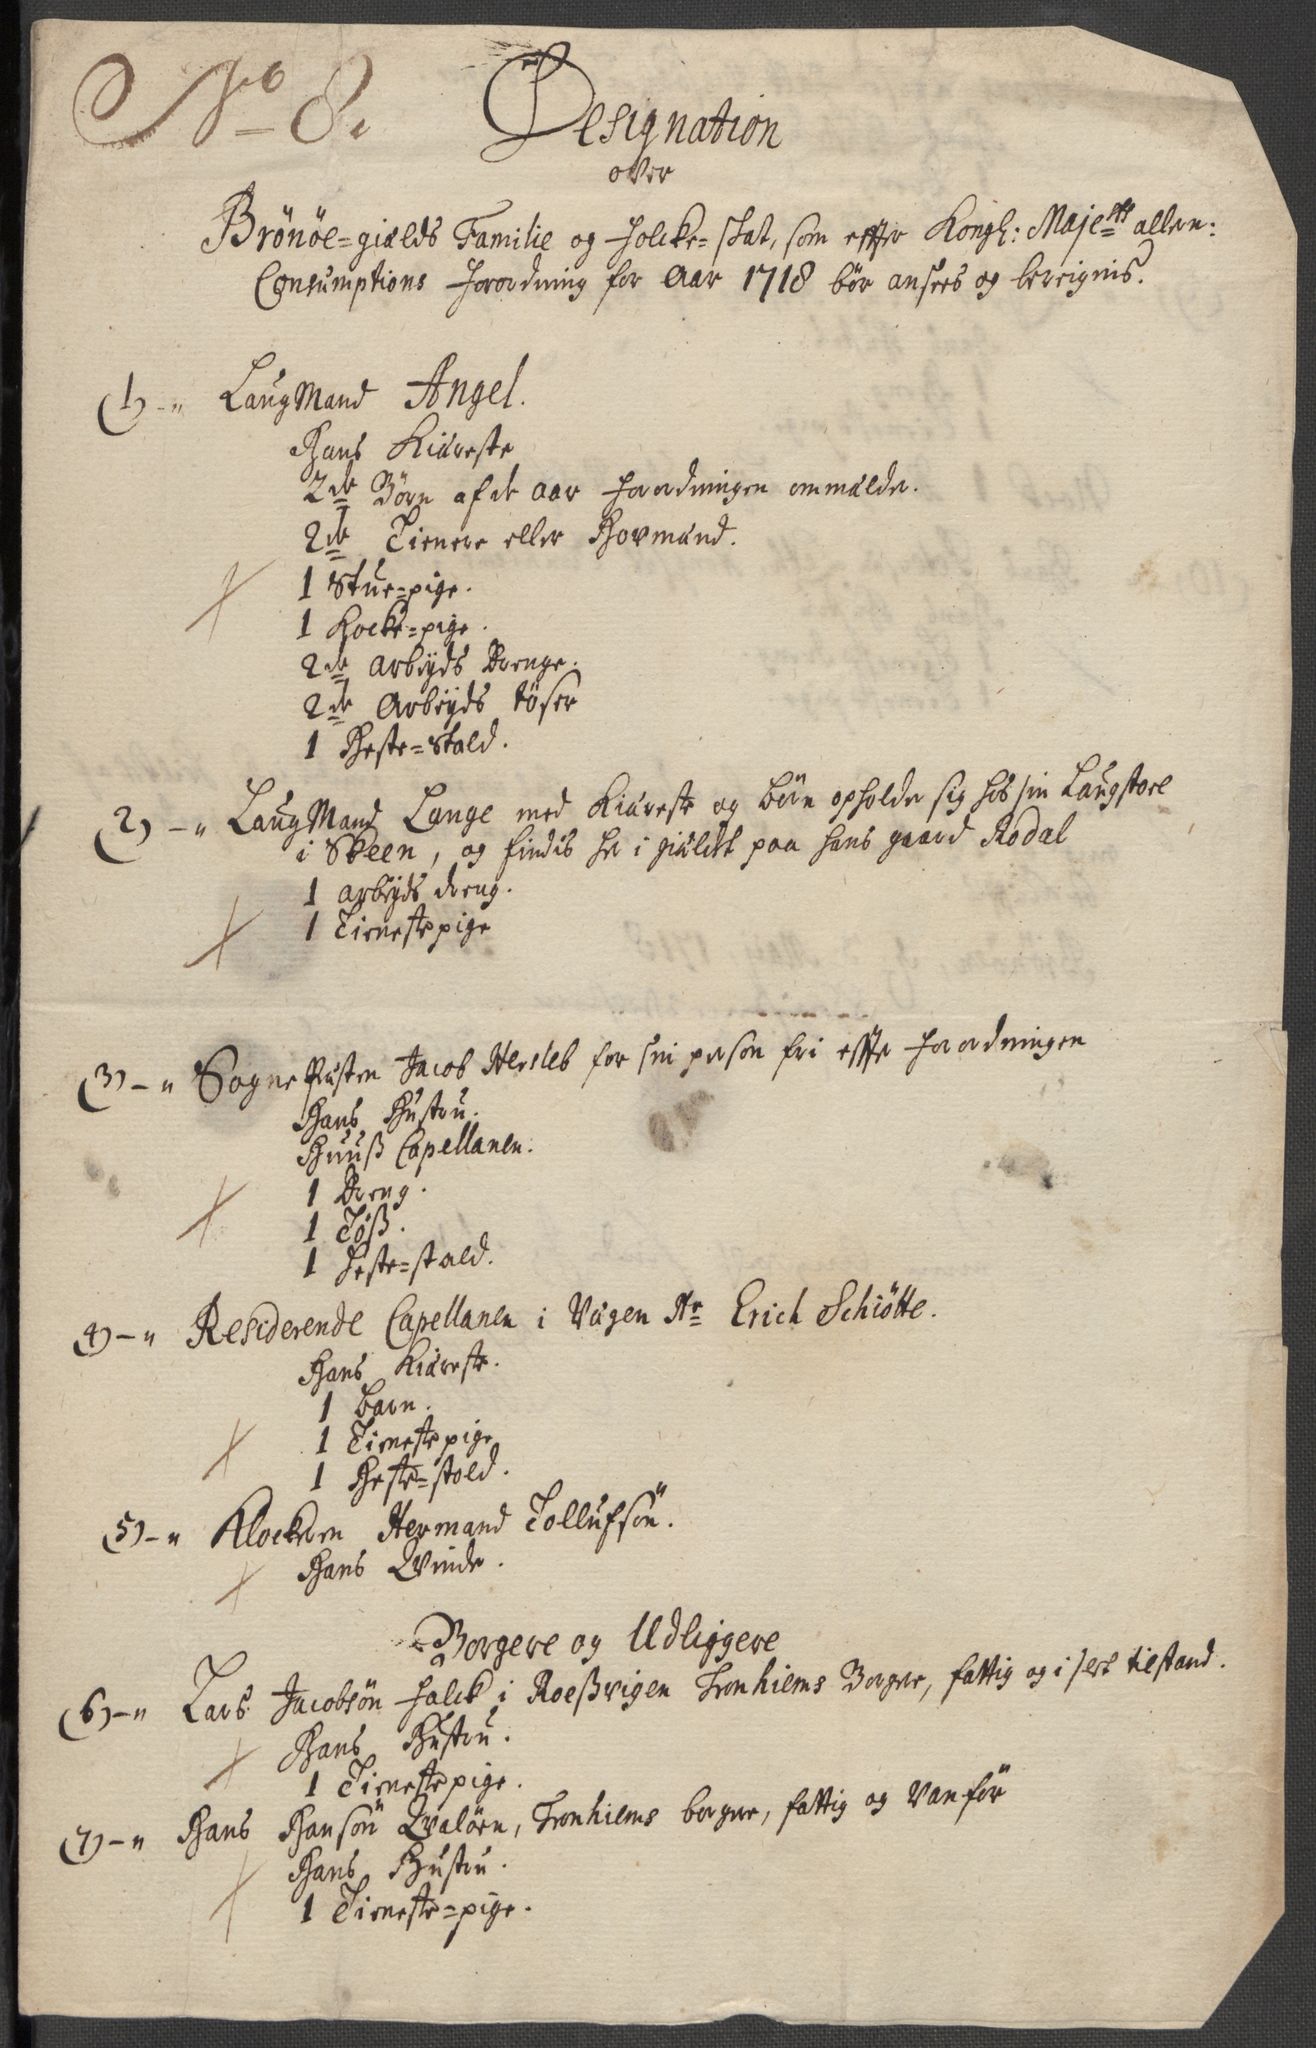 No 8.
Designation
over
Brönöe=gields Familie og Folcke=skat, som effter Kongl: Majets allern:
Consumptions Forordning for Aar 1718 bör ansees og bereignis.
(1) -" LaugMand Angel.
Hans Kiæreste
2de Börn af de aar Forordningen ommælder.
2de Tienere eller Hovmænd.
1 Stue=pige.
1 Kocke=pige.
2de arbeyds Drenge.
2de Arbeyds töser
1 Heste=Stald.
(2) -" LaugMand Lange med Kiæreste og börn opholder sig hos sin Laugstoel
i Skeen, og findis her i gieldet paa hans gaard Rodal
1 arbeyds dreng.
1 Tienestepige
(3) -" SognePræsten Jacob Hersleb for sin person fri effter Forordningen
Hans Hustru.
Huuß Capellanen.
1 Dreng.
1 Töß.
1 Heste=stald.
(4) -" Residerende Capellanen i Vægen Hr Erich Schiötte.
Hans Kiæreste.
1 barn.
1 Tienestepige
1 Heste=stald.
(5) -" Klockeren Hermand Tollufsön.
Hans Qvinde.
Borgere og Udliggere
(6) -" Lars Jacobsön Falck i Roeßvigen Tronhiems Borger, fattig og i slet tilstand.
Hans Hustru.
1 Tienestepige.
(7) -" Hans Hansön Qvalöen, Tronhiems borger, fattig og Vanför
Hans Hustru.
1 Tieneste=pige.